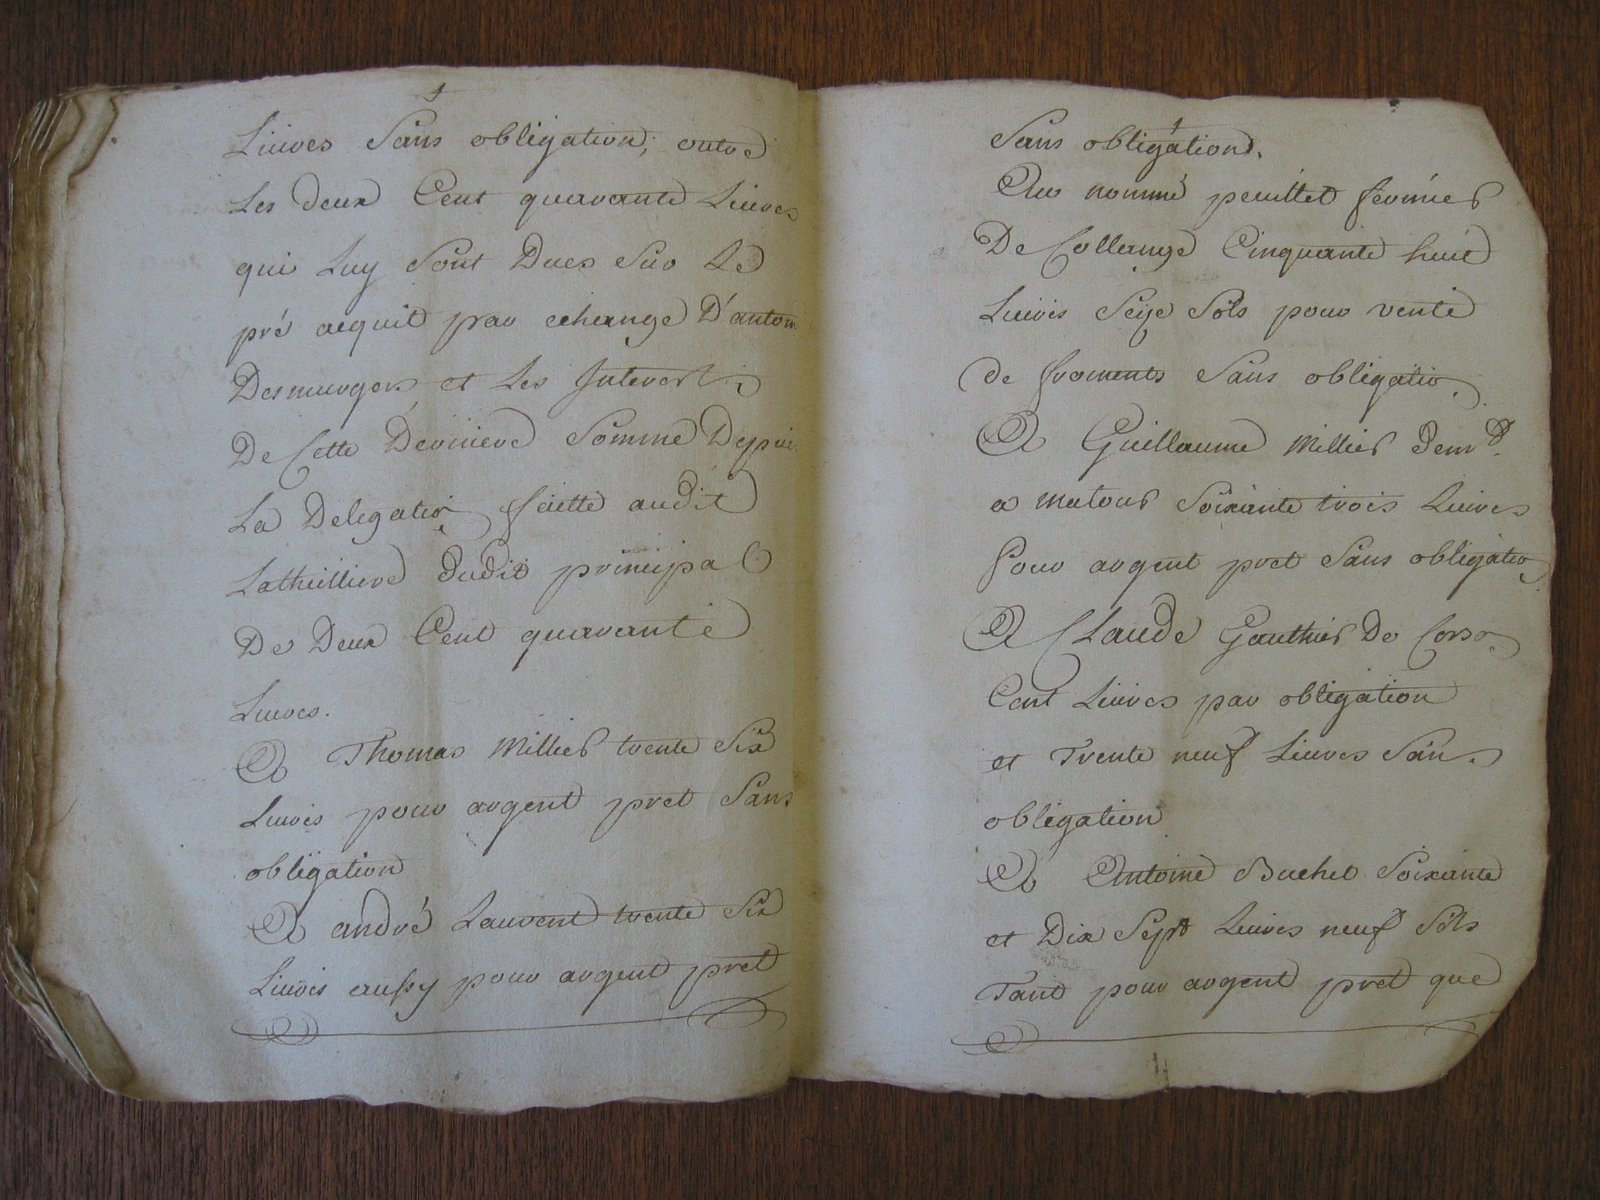 Livres Sans obligation, outre
Les deux Cent quarante Livres
qui Luy Sont Dues Sur Le
pré acquit par echange D'antoin
Desmurgers et Les Interest
De Cette Derniere Somme Depuis
La Delegation faitte audit
Lathuilliere dudit principal
De Deux Cent quarante
Livres.
A Thomas Millier trente Six
Livres pour argent pret Sans
obligation
A andré Laurent trente Six
Livres aussy pour argent pret
Sans obligation.
Au nommé peuillet fermier
De Collange Cinquante huit
Livres Seize Sols pour vente
de froments Sans obligatio
A Guillaume Millier demt
a matour Soixante trois Livres
Pour argent pret Sans obligatio
A Claude Gauthier De
Cent Livres par obligation
et Trente neuf Livres San.
obligation
A Antoine Buchet Soixante
et Dix Sept Livres neuf Sols
Tant pour argent pret que